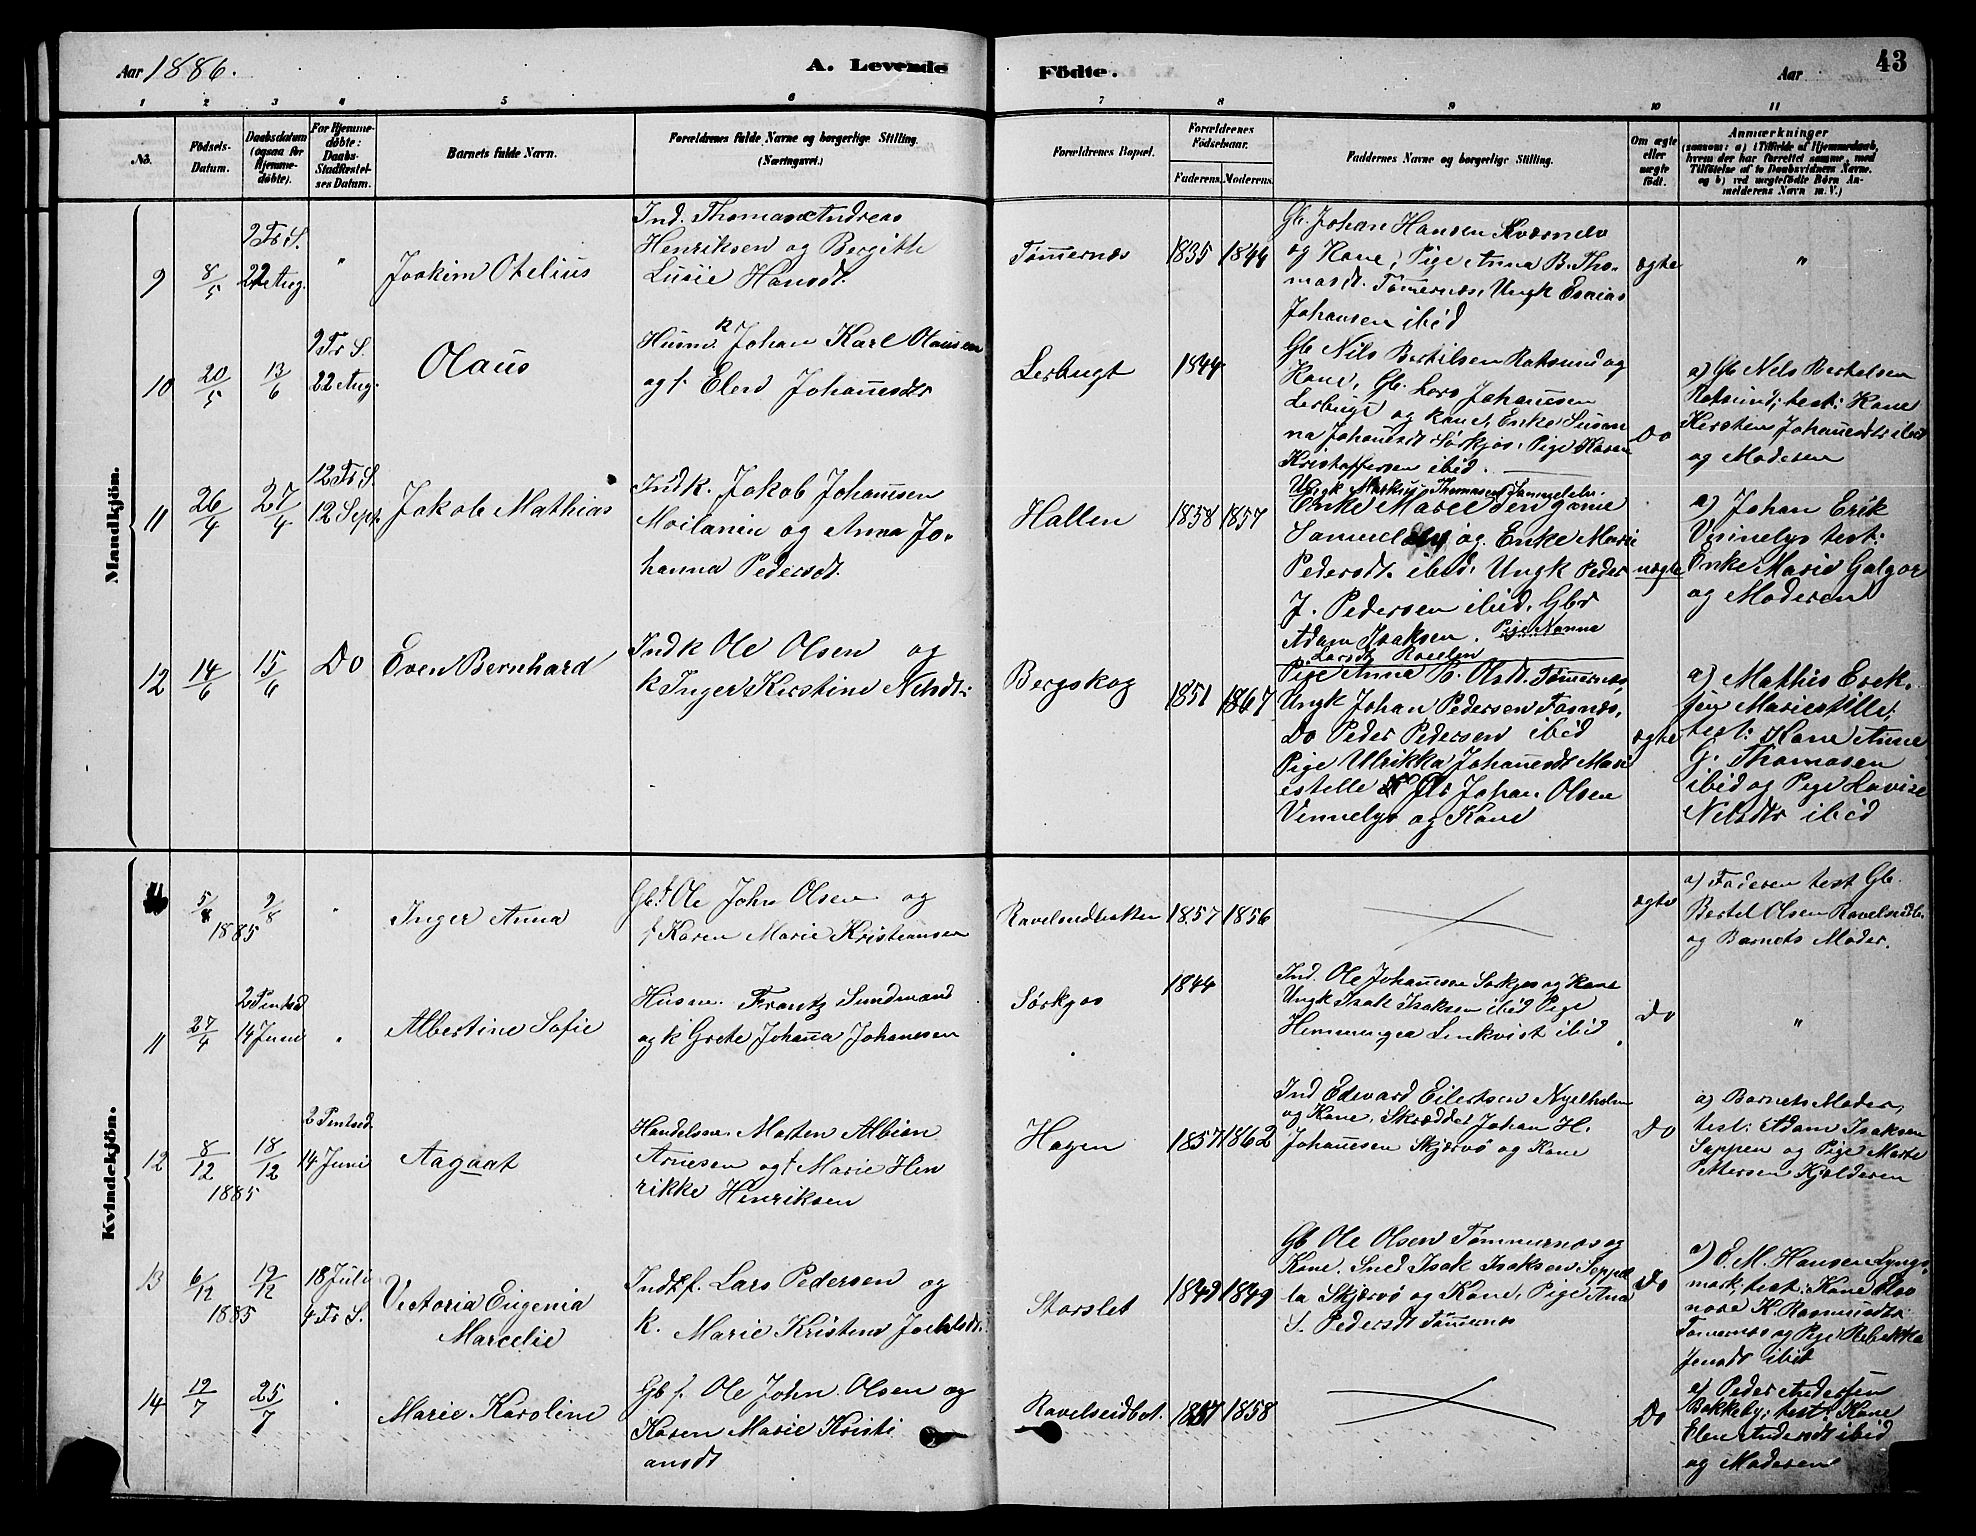 Aar 1886.
A. Levende
Födte.
Aar
43
1 2 3 4 5 6 7 8 9 10 11
No.
Födsels-
Datum.
Daabsdatum
(ogsaa for
Hjemme-
döbte).
For Hjemme-
döbte:
Daabs-
Stadfæstel-
ses Datum.
Barnets fulde Navn.
Forældrenes fulde Navne og borgerlige Stilling.
(Næringsvei.)
Forældrenes Bopæl.
Forældrenes
Födselsaar.
Faderens. Moderens.
Faddernes Navne og borgerlige Stilling.
Om ægte
eller
uægte
födt.
Anmærkninger
(saasom: a) i Tilfælde af Hjemmedaab,
hvem der har forrettet samme, med
Tilföielse af to Daabsvidners Navne.
og b) ved uægtefödte Börn An-
melderens Navn m. V.)
Mandkjön.
9
8/5
9 Tr S.
22 Aug.
"
Joakim Otelius
Ind. Thomas Andreas
Henriksen og Bergitte
Lusie Hansdt.
Tømernæs
1835 1844
Gb. Johan Hansen Kvænnelv
og Kone, Pige Anna B. Tho-
masdt. Tømernæs, Ungk Esaias
Johansen ibid
ægte
"
10
20/5
13/6
9 Tr S.
22 Aug.
Olaus
Husm. k Johan Karl Olausen
og f. Elen Johannesdr
Lerbugt
1844
Gb Nils Bertilsen Rotsund og
Kone, Gb. Lars Johannesen
Lerbugt og kone, Enke Susan
na Johannesdt Sørkjos, Pige Karen
Kristoffersen ibid.
Do
a) Gb Nels Bertelsen
Rotsund; test: Kone
Kirsten Johannesdtr ibid
og Moderen
11
26/4
27/4
12 Tr S.
12 Sept
Jakob Mathias
Indk. Jakob Johannsen
Moilanin og Anna Jo-
hanna Pedersdt.
Hallen
1858 1857
Ungk Markus Thomasen Samuelelv.
Enke Maree den gamle
Samuelelv og Enke Marie
Pedersdt. ibid. Ungk Peder
J. Pedersen ibid. Gbr
Adam Isaksen. Pige Nanna
Larsdt
uægte
a) Johan Erik
test:
Enke Marie Galgor
og Moderen
12
14/6
15/6
Do
Even Bernhard
Indk Ole Olsen og
k Inger Kerstine Nelsdt:
Bergskog
1851 1867
Pige Anna B. Olsdt. Tømernæs,
Ungk Johan Pedersen Fosnæs,
Do Peder Pedersen ibid
Pige Ulrikka Johannesdt Mari
estelle Johan. Olsen
Vinnelys og Kone
ægte
a) Mathis Erek-
sen Mariestille;
test: Kone Anne
G. Thomasen
ibid og Pige Lovise
Nelsdtr ibid
Kvindekjön.
5/8
9/8
1885
"
Inger Anna
Gb. f Ole John Olsen og
f Karen Marie Kristiansen
Ravelseidbotten
1857 1856
ægte
a) Faderen test Gb.
Bertel Olsen Ravelseidb.
og Barnets Moder.
11
27/4
2 Pintsed
14 Juni
"
Albertine Sofie
Husm. Frantz Sundmand
og k Grete Johanna Johannesen
Sørkjos
1844
Ind. Ole Johannesen Sørkjos og Kone
Ungk Isak Isaksen ibid Pige
Henningea Linkvist ibid
Do
"
12
8/12
18/12
1885
2 Pintsed
14 Juni
Aagaat
Handelsm. Morten Albion
Arnesen og f Marie Hen
rikke Henriksen
Hagen
1857 1862
Ind Edevard Eilertsen Nyelholm
og Kone, Skrædder Johan H.
Johannsen Skjervö og Kone
Do
a) Barnets Moder,
test: Adam Isaksen
Sappen og Pige Marte
Pettersen Kjelderen
13
6/12
19/12
1885
18 Juli
4 Tr S.
Victoria Eugenia
Marcelie
Indk f. Lars Pedersen og
k. Marie Kristine
Storslet
1849 1849
Gb Ole Olsen Tømmernæs og
Kone. Sned Isak Isaksen
Skjervö og Kone, Pige Ana
S. Pedersdt Tømernæs
Do
a) E. M. Hansen Lyngs-
mark; test: Kone Elo
nore K. Rasmusdtr
Tømernæs og Pige Rebekka
Jensdt ibid
14
12/7
25/7
"
Marie Karoline
Gb f. Ole John. Olsen og
Karen Marie Kristi
ansdt
Ravelseidbot.
1857 1858
Do
a) Peder Andersen
Bakkeby; test: Kone
Elen Andersdt ibid
og Moderen